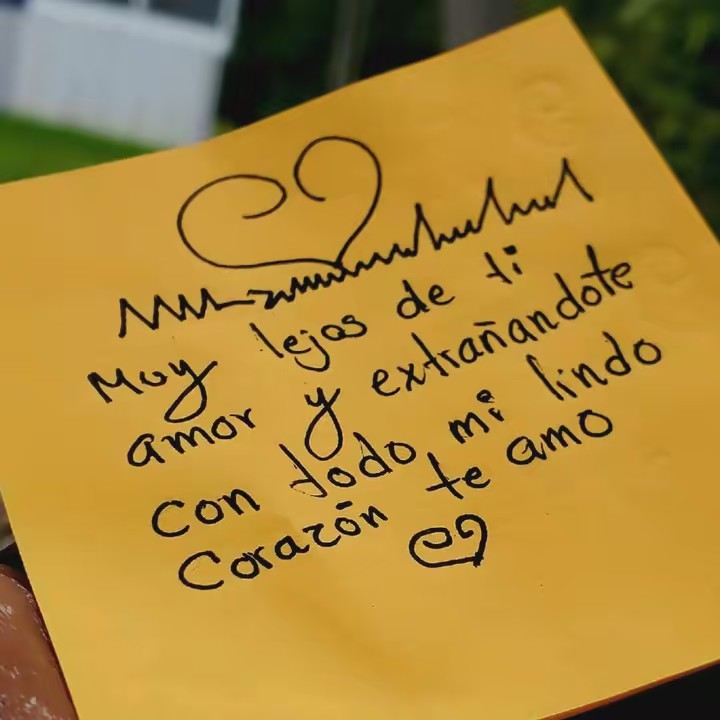 Muy lejos de ti
amor y extrañandote
con todo mi lindo
Corazón te amo